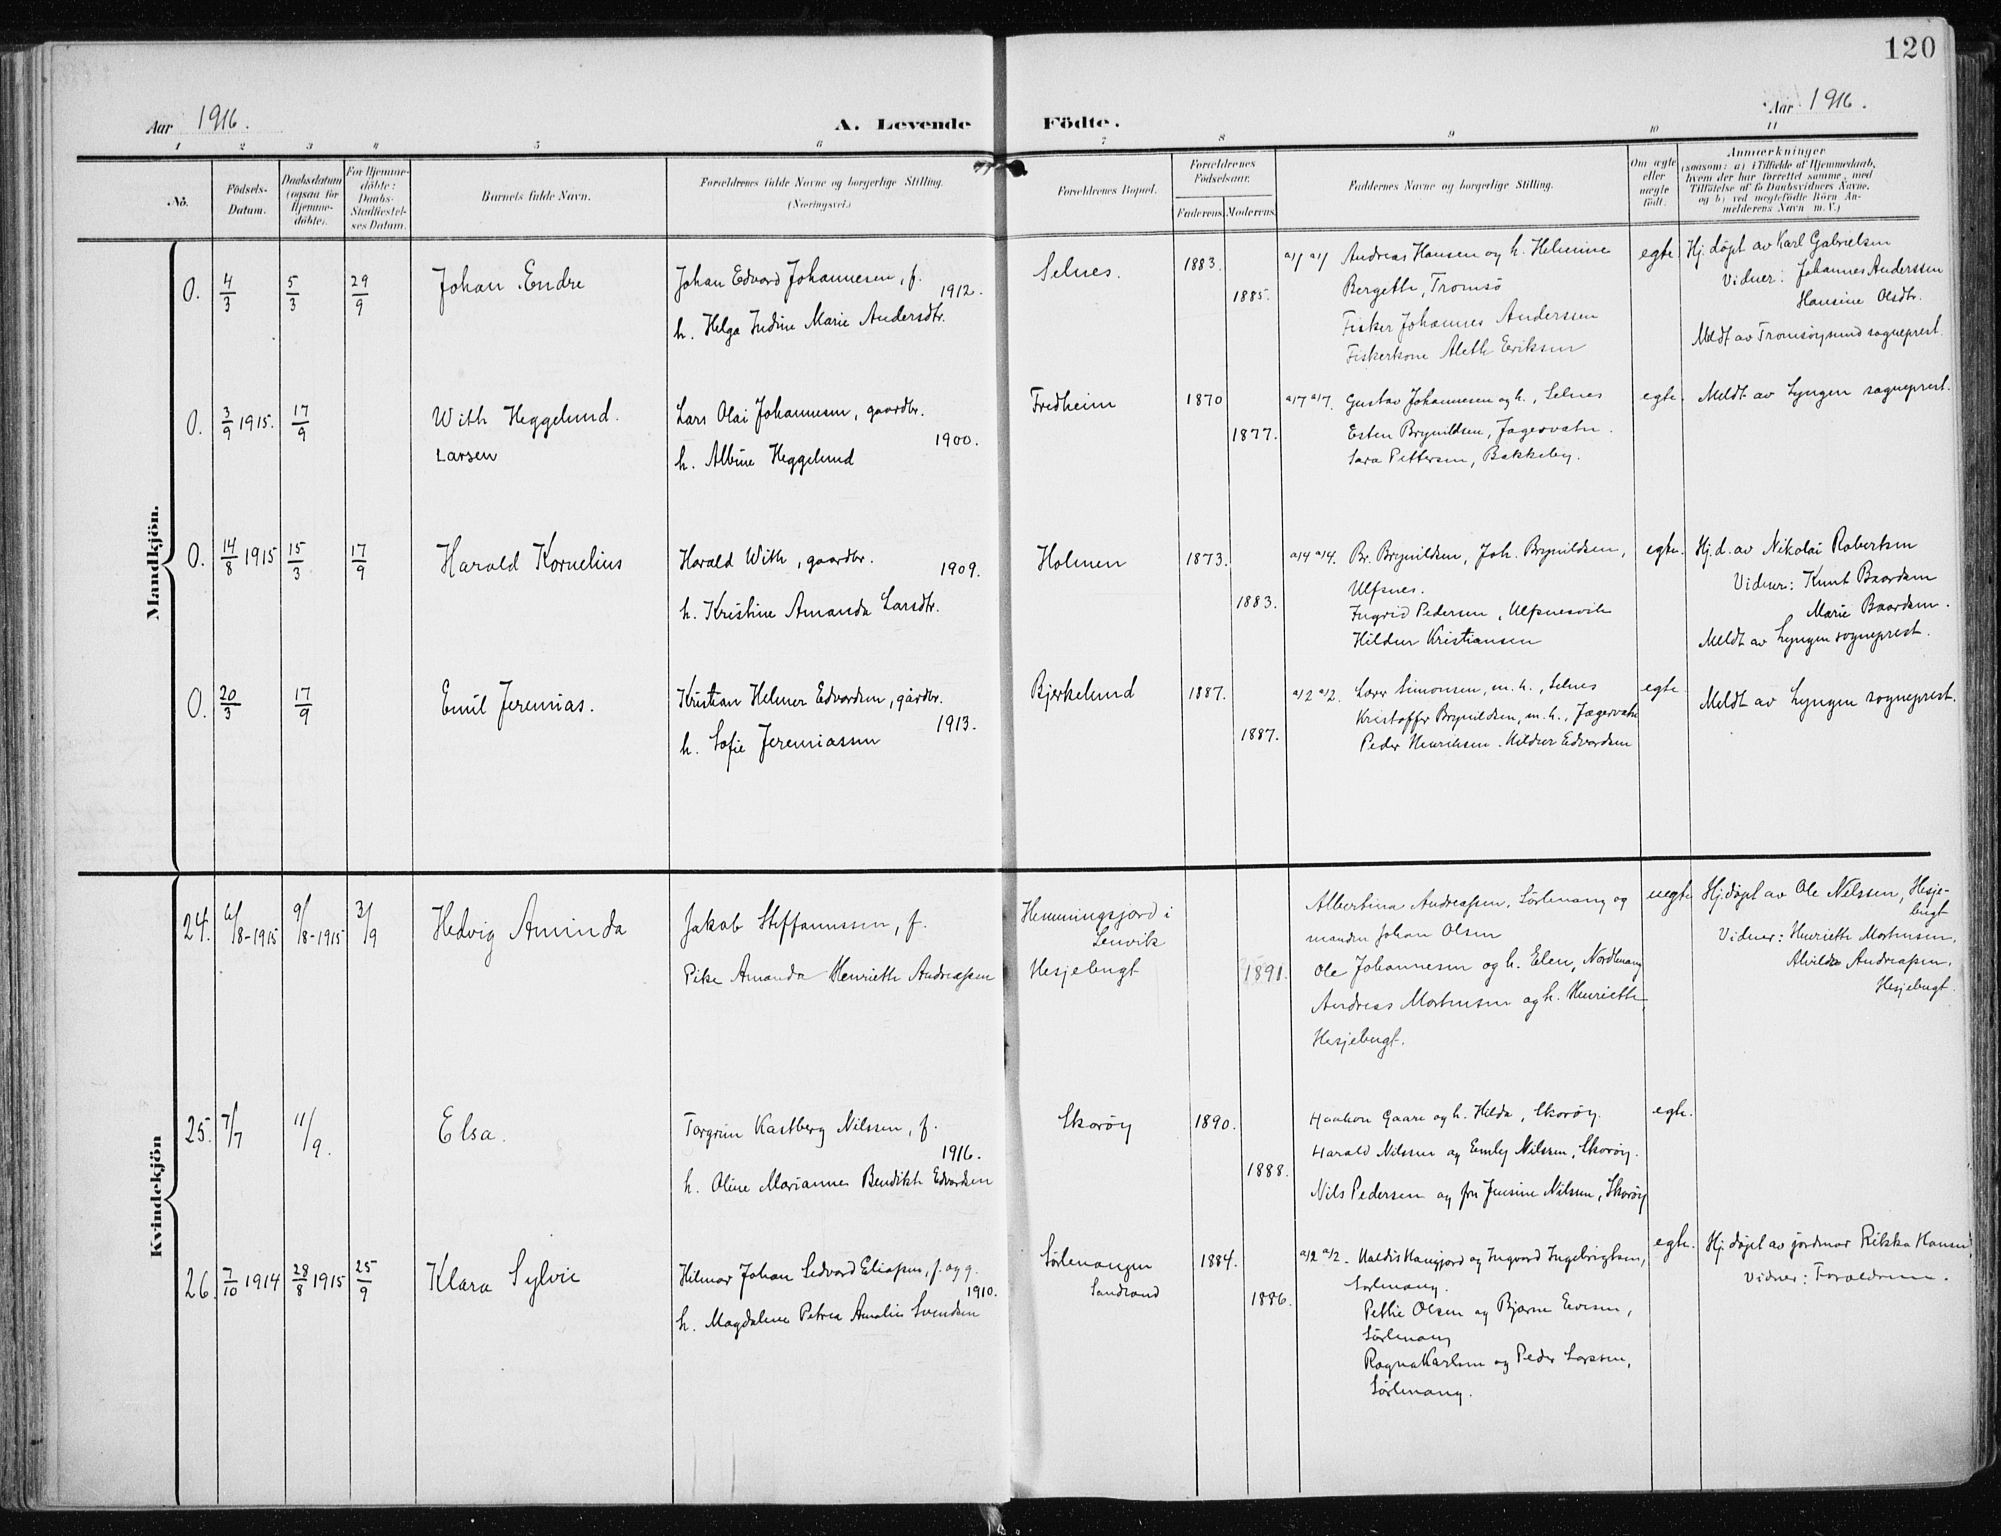 120
Aar 1916.
A. Levende Födte.
Aar 1916.
1 2 3 4 5 6 7 8 9 10 11
No.
Födsels-Datum.
Daabsdatum (ogsaa for Hjemme-döbte).
For Hjemme-döbte: Daabs-Stadfæstel-ses Datum.
Barnets fulde Navn.
Forældrenes fulde Navne og borgerlige Stilling.
(Næringsvei.)
Forældrenes Bopæl.
Forældrenes Födselsaar.
Faderens. Moderens.
Faddernes Navne og borgerlige Stilling.
Om ægte eller uægte födt.
Anmærkninger
(saasom: a) i Tilfælde af Hjemmedaab,
hvem der har forrettet samme, med
Tilföielse af to Daabsvidners Navne,
og b) ved uægtefödte Börn An-
melderens Navn m. V.)
Mandkjön.
0. 4/3 5/3 29/9 Johan Endre
Johan Edvard Johannesen, f.
1912.
h. Helga Indine Marie Andersdtr.
Selnes.
1883.
1885.
a/1 a/1 Andreas Hansen og h. Helmine
Bergeth, Tromsö
Fisker Johannes Anderssen
Fiskerkone Aleth Eriksen
egte
Hj. døpt av Karl Gabrielsen
Vidner: Johannes Anderssen
Hansine Olsdtr.
Meldt av Tromsøysund sogneprest.
0. 3/9 1915. 17/9 With Heggelund.
Larsen
Lars Olai Johannesen, gaardbr.
1900.
h. Albine Heggelund
Fredheim
1870
1877.
a/7 a/7. Gustav Johannesen og h., Selnes
Esten Brynildsen, Jagervatn.
Lara Pettersen, Bakkeby.
egte.
Meldt av Lyngen sogneprest.
0. 14/8 1915 15/3 17/9 Harald Kornelius
Harald With, gaardbr.
1909.
h. Kristine Amanda Larsdtr.
Holmen
1873.
1883.
a/4 a/4. Br. Brynildsen, Joh. Brynildsen,
Ulfsnes.
Ingrid Pedersen, Ulfsnesvik
Hildur Kristiansen
egte.
Hj.d. av Nikolai Robertsen
Vidner: Knut Baardsen
Marie Baardsen.
Meldt av Lyngen sogneprest.
0. 20/3 17/9 Emil Jeremias.
Kristian Helmer Edvardsen, gårdbr.
1913.
h. Sofie Jeremiassen
Bjerkelund
1887.
1887.
a/2 a/2. Lars Simonsen, m. h., Selnes
Kristoffer Brynildsen, m. h., Jægervatn
Peder Henriksen. Hildur Edvardsen
egte
Meldt av Lyngen sogneprest.
Kvindekjön
24. 6/8-1915 9/8-1915 3/9 Hedvig Aminda
Jakob Steffanussen, f.
Pike Amanda Henriette Andreassen
Hemmingsjord i
Lenvik
Hesjebugt
1891.
Albertina Andreassen, Sörlenang og
manden Johan Olsen
Ole Johannesen og h. Elen, Nordlenang
Andreas Mortensen og h. Henriette,
Hesjebugt.
uegte
Hj.døpt av Ole Nelssen, Hesje-
bugt
Vidner: Henriette Mortensen,
Alvilda Andreassen,
Hesjebugt.
25. 7/7 11/9. Elsa.
Torgrim Kastberg Nilssen, f.
1916.
h. Oline Marianne Bendikte Edvardsen
Skorøy
1890.
1888.
Haakon Gaare og h. Hilda, Skorøy.
Harald Nilssen og Emly Nilssen, Skorøy.
Nils Pedersen og fru Jensine Nilssen, Skorøy
egte.
26. 7/10 1914 28/8 1915 25/9 Klara Sylvie
Hilmar Johan Sedvard Eliassen, f. og g.
1910.
h. Magdalene Petrea Amalie Svendsen
Sörlenangen
Sandland
1884.
1886.
a/2 a/2. Valdis Hamyjord og Ingvard Ingebrigtsen,
Sörlenang.
Pethie Olsen og Bjarne Eversen,
Sörlenang
Ragna Karlsen og Peder Larssen,
Sörlenang.
egte.
Hj.døpt av jordmor Rikka Hansen,
Vidner: Forældrene.